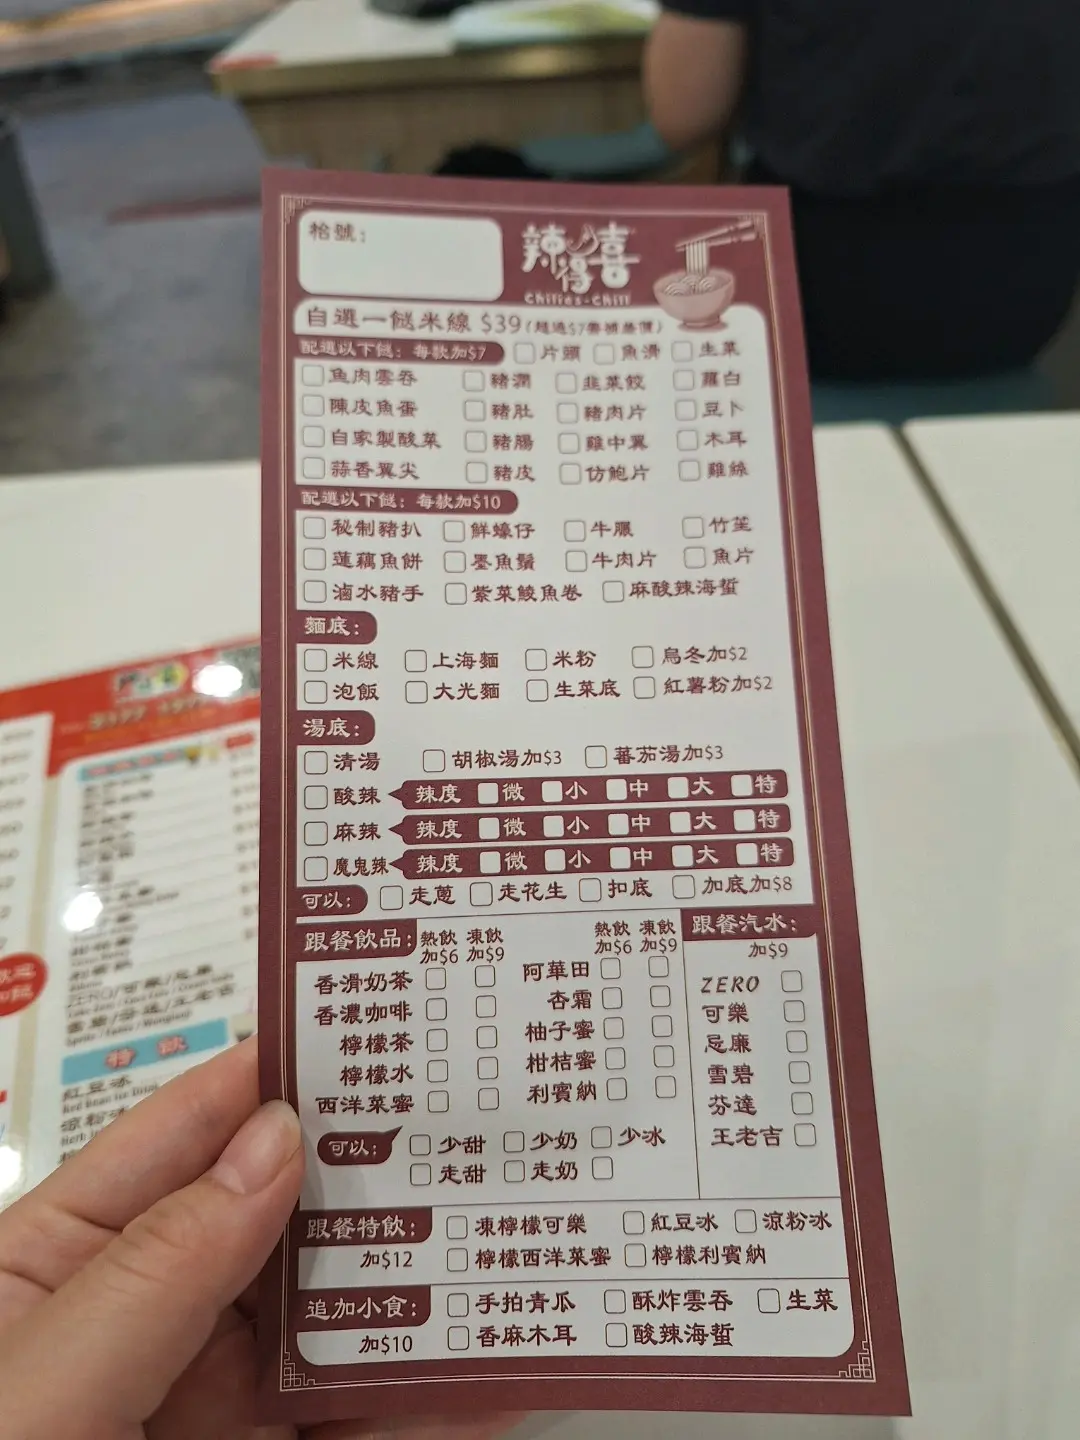 枱號：
辣得喜
Chilies-Chill
自選一餸米線 $39
配選以下餸：每款加$7 片頭 魚滑 生菜
魚肉雲吞 豬潤 韭菜餃 蘿白
陳皮魚蛋 豬肚 豬肉片 豆卜
自家製酸菜 豬腸 雞中翼 木耳
蒜香翼尖 豬皮 仿鮑片 雞絲
配選以下餸：每款加$10
秘制豬扒 鮮蠔仔 牛𦟌 竹笙
蓮藕魚餅 墨魚鬚 牛肉片 魚片
滷水豬手 紫菜鯪魚卷 麻酸辣海蜇
麵底：
米線 上海麵 米粉 烏冬加$2
泡飯 大光麵 生菜底 紅薯粉加$2
湯底：
清湯 胡椒湯加$3 蕃茄湯加$3
酸辣 辣度 微 小 中 大 特
麻辣 辣度 微 小 中 大 特
魔鬼辣 辣度 微 小 中 大 特
可以： 走蔥 走花生 扣底 加底加$8
跟餐飲品： 熱飲加$6 凍飲加$9
香滑奶茶
香濃咖啡
檸檬茶
檸檬水
西洋菜蜜
熱飲加$6 凍飲加$9
阿華田
杏霜
柚子蜜
柑桔蜜
利賓納
可以： 少甜 少奶 少冰
走甜 走奶
跟餐汽水：
加$9
ZERO
可樂
忌廉
雪碧
芬達
王老吉
跟餐特飲： 凍檸檬可樂 紅豆冰 涼粉冰
加$12 檸檬西洋菜蜜 檸檬利賓納
追加小食： 手拍青瓜 酥炸雲吞 生菜
加$10 香麻木耳 酸辣海蜇
特飲
紅豆冰
Red Bean Ice Drink
涼粉冰